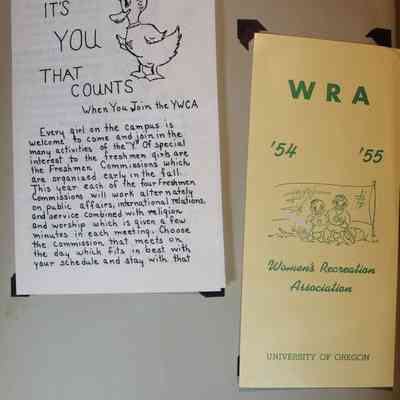 IT'S
YOU
THAT
COUNTS
When You Join the YWCA
Every girl on the campus is
welcome to come and join in the
many activities of the "Y". Of special
interest to the freshmen girls are
the Freshmen Commissions which
are organized early in the fall.
This year each of the four Freshmen
Commissions will work alternately
on public affairs, international relations,
and service combined with religion
and worship which is given a few
minutes in each meeting. Choose
the commission that meets on
the day which fits in best with
your schedule and stay with that
WRA
'54 '55
Women's Recreation
Association
UNIVERSITY OF OREGON